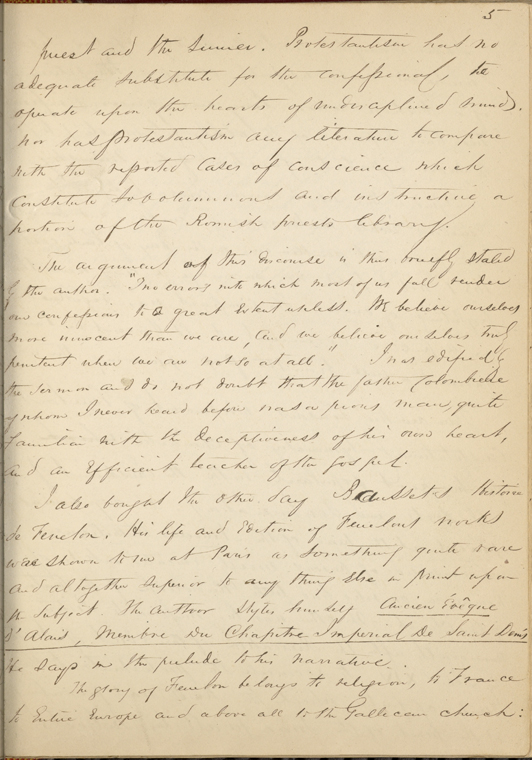 5
priest and the sinner. Protestantism has no
adequate substitute for the confessional, to
operate upon the hearts of undisciplined minds,
nor has Protestantism any literature to compare
with the reported cases of conscience which
constitute so voluminous and instructive a
portion of the Romish priests library.
The argument of this discourse is thus briefly stated
by the author. "Two errors into which most of us fall render
our confessions to a great extent useless. We believe ourselves
more innocent than we are, and we believe ourselves truly
penitent when we are not so at all." I was edified by
the sermon and do not doubt that the father
whom I never heard before was a pious man, quite
familiar with the deceptiveness of his own heart,
and an efficient teacher of the gospel.
I also bought the other day Baussets Histoire
de Fenelon. His life and Edition of Fenelons works
was shown to me at Paris as something quite rare
and altogether superior to any thing else in print upon
the subject. The author styles himself Ancien Evêque
d'Alais, Membre Du Chapitre Imperial De Saint Denis
He says in the prelude to his narrative.
The glory of Fenelon belongs to religion, to France
to Entire Europe and above all to the Gallican church: